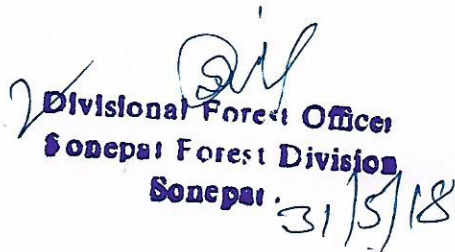 Divisional Forest Officer
Sonepat Forest Division
Sonepat.
31/5/18